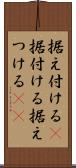 据え付ける
据付ける据え
つける